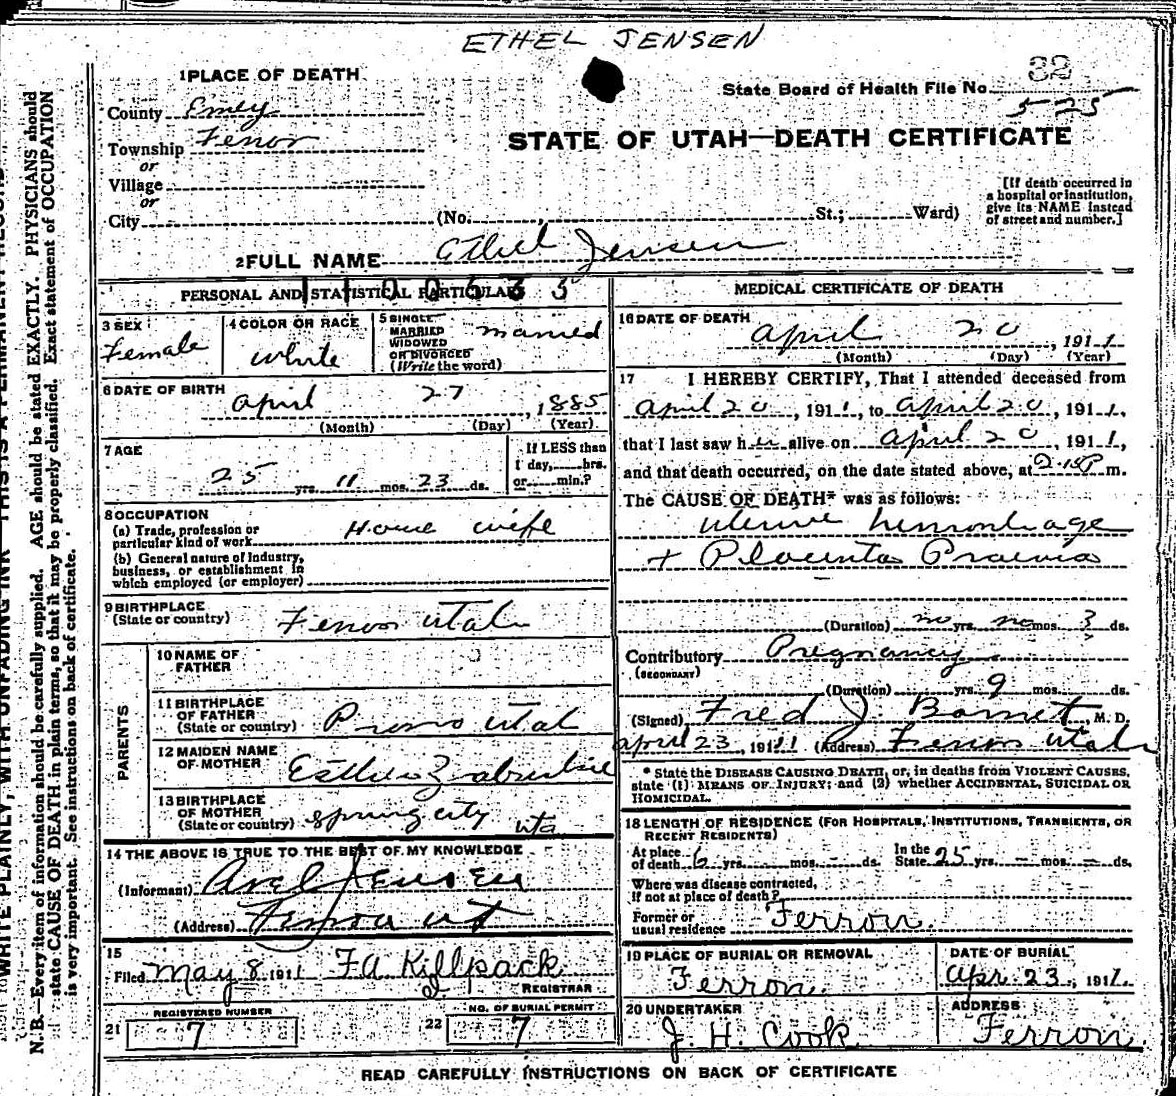 ETHEL JENSEN
32
State Board of Health File No. 525
STATE OF UTAH—DEATH CERTIFICATE
1 PLACE OF DEATH
County Emery
Township Ferron
or
Village
or
City (No. , St.; Ward)
[If death occurred in
a hospital or institution,
give its NAME instead
of street and number.]
2 FULL NAME Ethel Jensen
1100635
PERSONAL AND STATISTICAL PARTICULARS
3 SEX
Female
4 COLOR OR RACE
White
5 SINGLE
MARRIED
WIDOWED
OR DIVORCED
(Write the word)
married
6 DATE OF BIRTH
April 27, 1885
(Month) (Day) (Year)
7 AGE
25 yrs. 11 mos. 23 ds.
If LESS than
1 day, hrs.
or min.?
8 OCCUPATION
(a) Trade, profession or
particular kind of work House wife
(b) General nature of industry,
business, or establishment in
which employed (or employer)
9 BIRTHPLACE
(State or country) Ferron Utah
PARENTS
10 NAME OF
FATHER
11 BIRTHPLACE
OF FATHER
(State or country) Provo Utah
12 MAIDEN NAME
OF MOTHER Esther
13 BIRTHPLACE
OF MOTHER
(State or country) Spring city Uta
14 THE ABOVE IS TRUE TO THE BEST OF MY KNOWLEDGE
(Informant) Axel Jensen
(Address) Ferron Ut
15
Filed May 8 1911 F A Killpack
REGISTRAR
REGISTERED NUMBER
21 7
NO. OF BURIAL PERMIT
22 7
MEDICAL CERTIFICATE OF DEATH
16 DATE OF DEATH
April 20, 1911
(Month) (Day) (Year)
17 I HEREBY CERTIFY, That I attended deceased from
April 20, 1911, to April 20, 1911,
that I last saw her alive on April 20, 1911,
and that death occurred, on the date stated above, at 2.15 P m.
The CAUSE OF DEATH* was as follows:
uterine hemorrhage
+ Placenta Praevia
(Duration) no yrs. no mos. 3 ds.
Contributory Pregnancy
(SECONDARY)
(Duration) yrs. 9 mos. ds.
(Signed) Fred J. , M. D.
April 23, 1911 (Address) Ferron Utah
* State the DISEASE CAUSING DEATH, or, in deaths from VIOLENT CAUSES,
state (1) MEANS OF INJURY; and (2) whether ACCIDENTAL, SUICIDAL OR
HOMICIDAL.
18 LENGTH OF RESIDENCE (FOR HOSPITALS, INSTITUTIONS, TRANSIENTS, OR
RECENT RESIDENTS)
At place
of death 6 yrs. - mos. - ds.
In the
State 25 yrs. - mos. - ds.
Where was disease contracted,
if not at place of death?
Former or
usual residence Ferron.
19 PLACE OF BURIAL OR REMOVAL
Ferron.
DATE OF BURIAL
Apr. 23, 1911.
20 UNDERTAKER
J. H. Cook
ADDRESS
Ferron.
READ CAREFULLY INSTRUCTIONS ON BACK OF CERTIFICATE
WRITE PLAINLY, WITH UNFADING INK—THIS IS A PERMANENT RECORD
N. B.—Every item of information should be carefully supplied. AGE should be stated EXACTLY. PHYSICIANS should
state CAUSE OF DEATH in plain terms, so that it may be properly classified. Exact statement of OCCUPATION
is very important. See instructions on back of certificate.